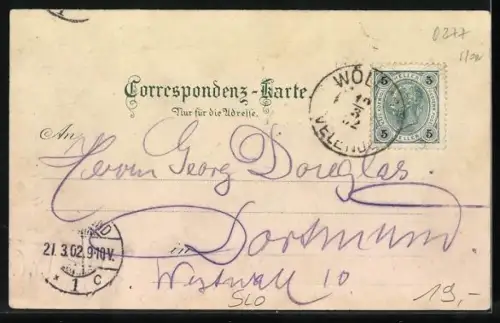 0277
Correspondenz-Karte.
Nur für die Adresse.
WÖL
VELENJ
HELLER
5 5
5 5
HELLER
An
Herrn Georg Douglas.
in Dortmund.
Westwall 10.
21.3.02.9-10V.
* 1 C
SLO
19,-